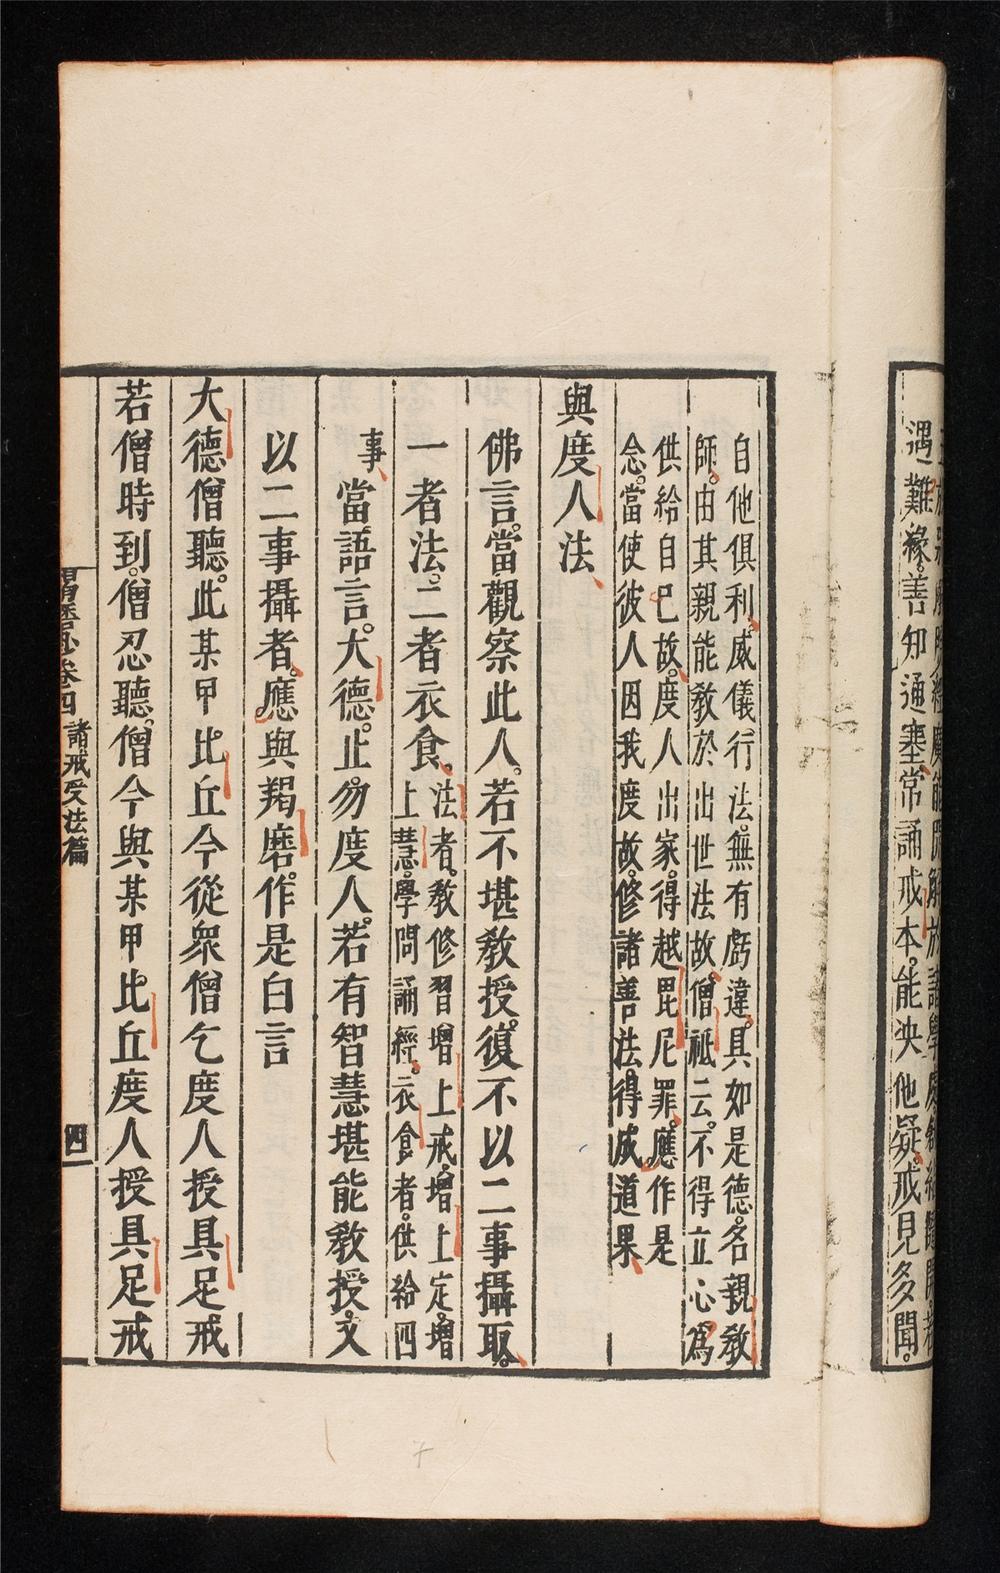 遇難緣。善知通塞、常誦戒本。能決他疑。戒見多聞。
自他俱利。威儀行法。無有虧違。具如是德。名親教
師。由其親能教於出世法故。僧祗云。不得立心。為
供給自己故。度人出家。得越毘尼罪。應作是
念。當使彼人因我度故。修諸善法。得成道果、
與度人法、
佛言。當觀察此人。若不堪教授。復不以二事攝取。
一者法。二者衣食。
法者。教修習增上戒。增上定。增
上慧。學問誦經。衣食者。供給四
事、
當語言。大德。止。勿度人。若有智慧堪能教授。又
以二事攝者。應與羯磨。作是白言
大德僧聽。此某甲比丘今從眾僧乞度人授具足戒
若僧時到。僧忍聽。僧今與某甲比丘度人授具足戒
卷四 諸戒受法篇
四